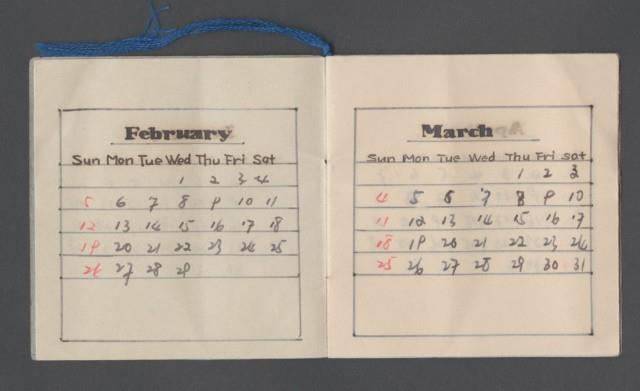 February
Sun Mon Tue Wed Thu Fri Sat
1 2 3 4
5 6 7 8 9 10 11
12 13 14 15 16 17 18
19 20 21 22 23 24 25
26 27 28 29
March
Sun Mon Tue Wed Thu Fri Sat
1 2 3
4 5 6 7 8 9 10
11 12 13 14 15 16 17
18 19 20 21 22 23 24
25 26 27 28 29 30 31